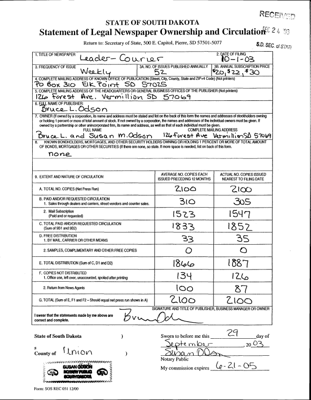 RECEIVED
STATE OF SOUTH DAKOTA
Statement of Legal Newspaper Ownership and Circulation
Return to: Secretary of State, 500 E. Capitol, Pierre, SD 57501-5077
S.D. SEC. OF STATE
1. TITLE OF NEWSPAPER
Leader-Courier
2. DATE OF FILING
10-1-03
3. FREQUENCY OF ISSUE
Weekly
3A. NO. OF ISSUES PUBLISHED ANNUALLY
52
3B. ANNUAL SUBSCRIPTION PRICE
$20, $22, $30
4. COMPLETE MAILING ADDRESS OF KNOWN OFFICE OF PUBLICATION (Street, City, County, State and ZIP+4 Code) (Not printers)
PO Box 310 Elk Point SD 57025
5. COMPLETE MAILING ADDRESS OF THE HEADQUARTERS OR GENERAL BUSINESS OFFICES OF THE PUBLISHER (Not printers)
126 Forest Ave. Vermillion SD 57069
6. FULL NAME OF PUBLISHER
Bruce L. Odson
7. OWNER (If owned by a corporation, its name and address must be stated and also the names and addresses of stockholders owning
FULL NAME
COMPLETE MAILING ADDRESS
Bruce L. and Susan M. Odson 126 Forest Ave Vermillion SD 57069
8. KNOWN BONDHOLDERS, MORTGAGEES, AND OTHER SECURITY HOLDERS OWNING OR HOLDING 1 PERCENT OR MORE OF TOTAL AMOUNT
OF BONDS, MORTGAGES OR OTHER SECURITIES
none
9. EXTENT AND NATURE OF CIRCULATION
AVERAGE NO. COPIES EACH ISSUES PRECEDING 12 MONTHS
ACTUAL NO. COPIES ISSUED NEAREST TO FILING DATE
A. TOTAL NO. COPIES (Net Press Run) 2100 2100
B. PAID AND/OR REQUESTED CIRCULATION
1. Sales through dealers and carriers, street vendors and counter sales 310 305
2. Mail Subscription
(Paid and or requested) 1523 1547
C. TOTAL PAID AND/OR REQUESTED CIRCULATION
(Sum of 9B1 and 9B2) 1833 1852
D. FREE DISTRIBUTION
1. BY MAIL, CARRIER OR OTHER MEANS 33 35
2. SAMPLES, COMPLIMENTARY AND OTHER FREE COPIES 0 0
E. TOTAL DISTRIBUTION (Sum of C, D1 and D2) 1866 1887
F. COPIES NOT DISTRIBUTED
1. Office use, left over, unaccounted, spoiled after printing 134 126
2. Return from News Agents 100 87
G. TOTAL (Sum of E, F1 and F2 - Should equal net press run shown in A) 2100 2100
I swear that the statements made by me above are
correct and complete.
SIGNATURE AND TITLE OF PUBLISHER, BUSINESS MANAGER OR OWNER
State of South Dakota )
County of Union )
Sworn to before me this 29 day of
September 2003
Susan Odson
Notary Public
My commission expires 6-21-05
SUSAN ODSON
NOTARY PUBLIC
SOUTH DAKOTA